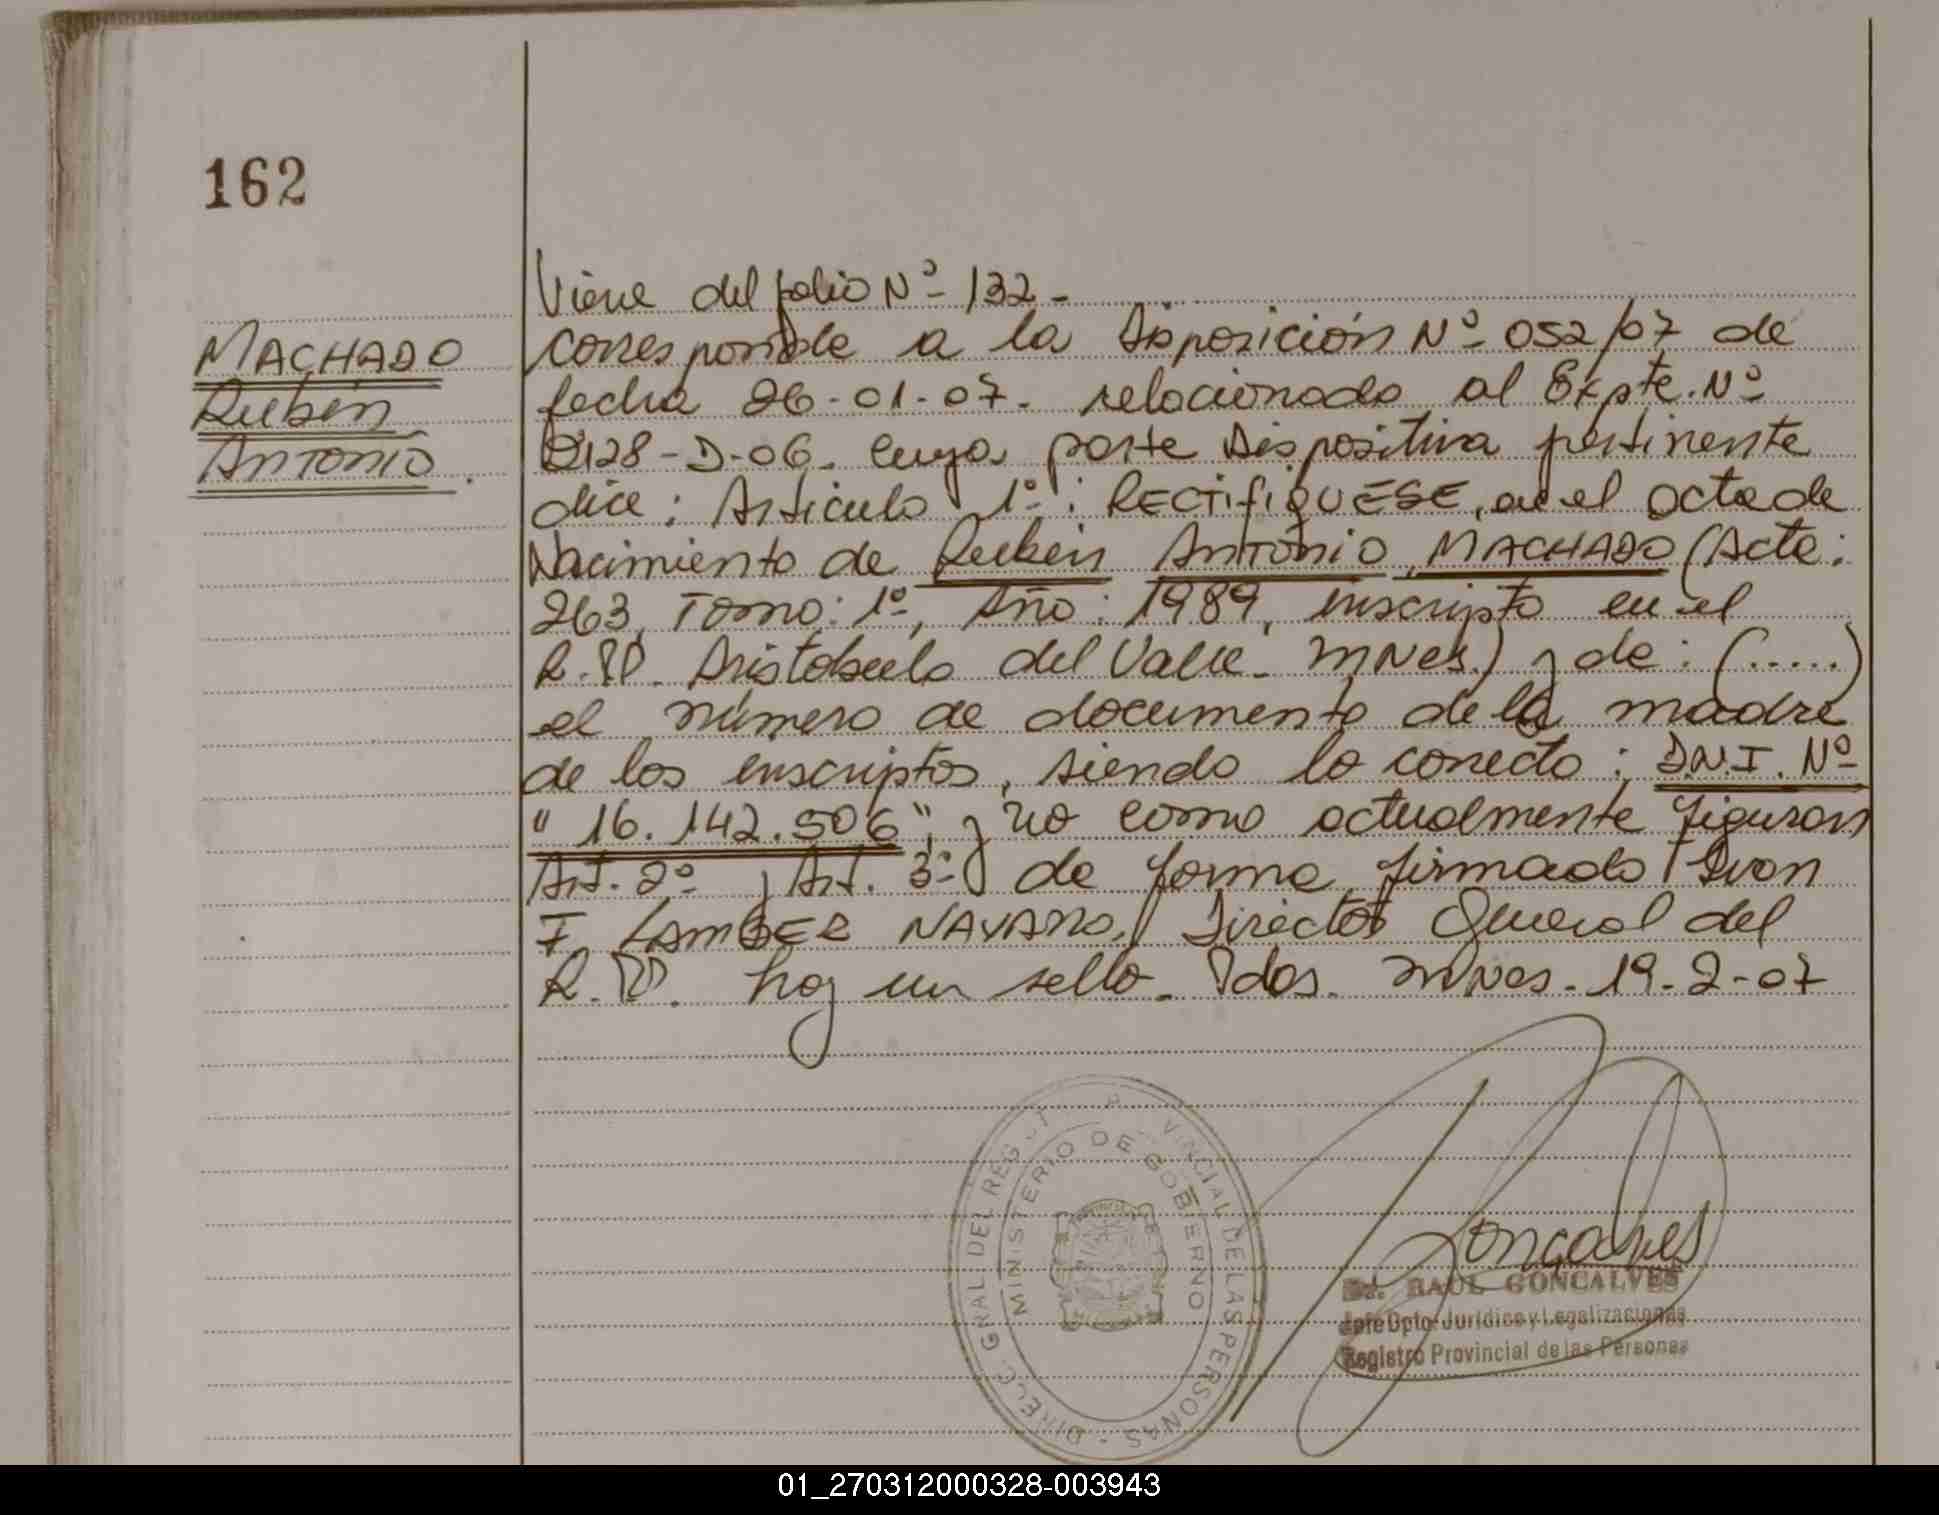 162
MACHADO
Rubén
Antonio.
Viene del folio Nº 132 -
corresponde a la Disposición Nº 052/07 de
fecha 26-01-07. relacionado al Expte. Nº
2128-D-06. cuya parte dispositiva pertinente
dice: Articulo 1º: RECTIFIQUESE, en el acta de
Nacimiento de Rubén Antonio MACHADO (Acta:
263, Tomo: 1º, Año: 1989, inscripto en el
R.P. Aristobulo del Valle - Mnes.) y de: (.....)
el número de documento de la madre
de los inscriptos, siendo lo correcto: D.N.I. Nº
"16.142.506", y no como actualmente figuran
Art. 2º y Art. 3º de forma firmado Ivan
F. LAMBER NAVARRO, Director General del
R.P. hay un sello. Pdas. Mnes. 19-2-07
DIREC. GRAL DEL REGIST. VINCIAL DE LAS PERSONAS -
MINISTERIO DE GOBIERNO
Goncalves
Dr. RAUL GONCALVES
Jefe Dpto. Juridico y Legalizaciones
Registro Provincial de las Personas
01_270312000328-003943